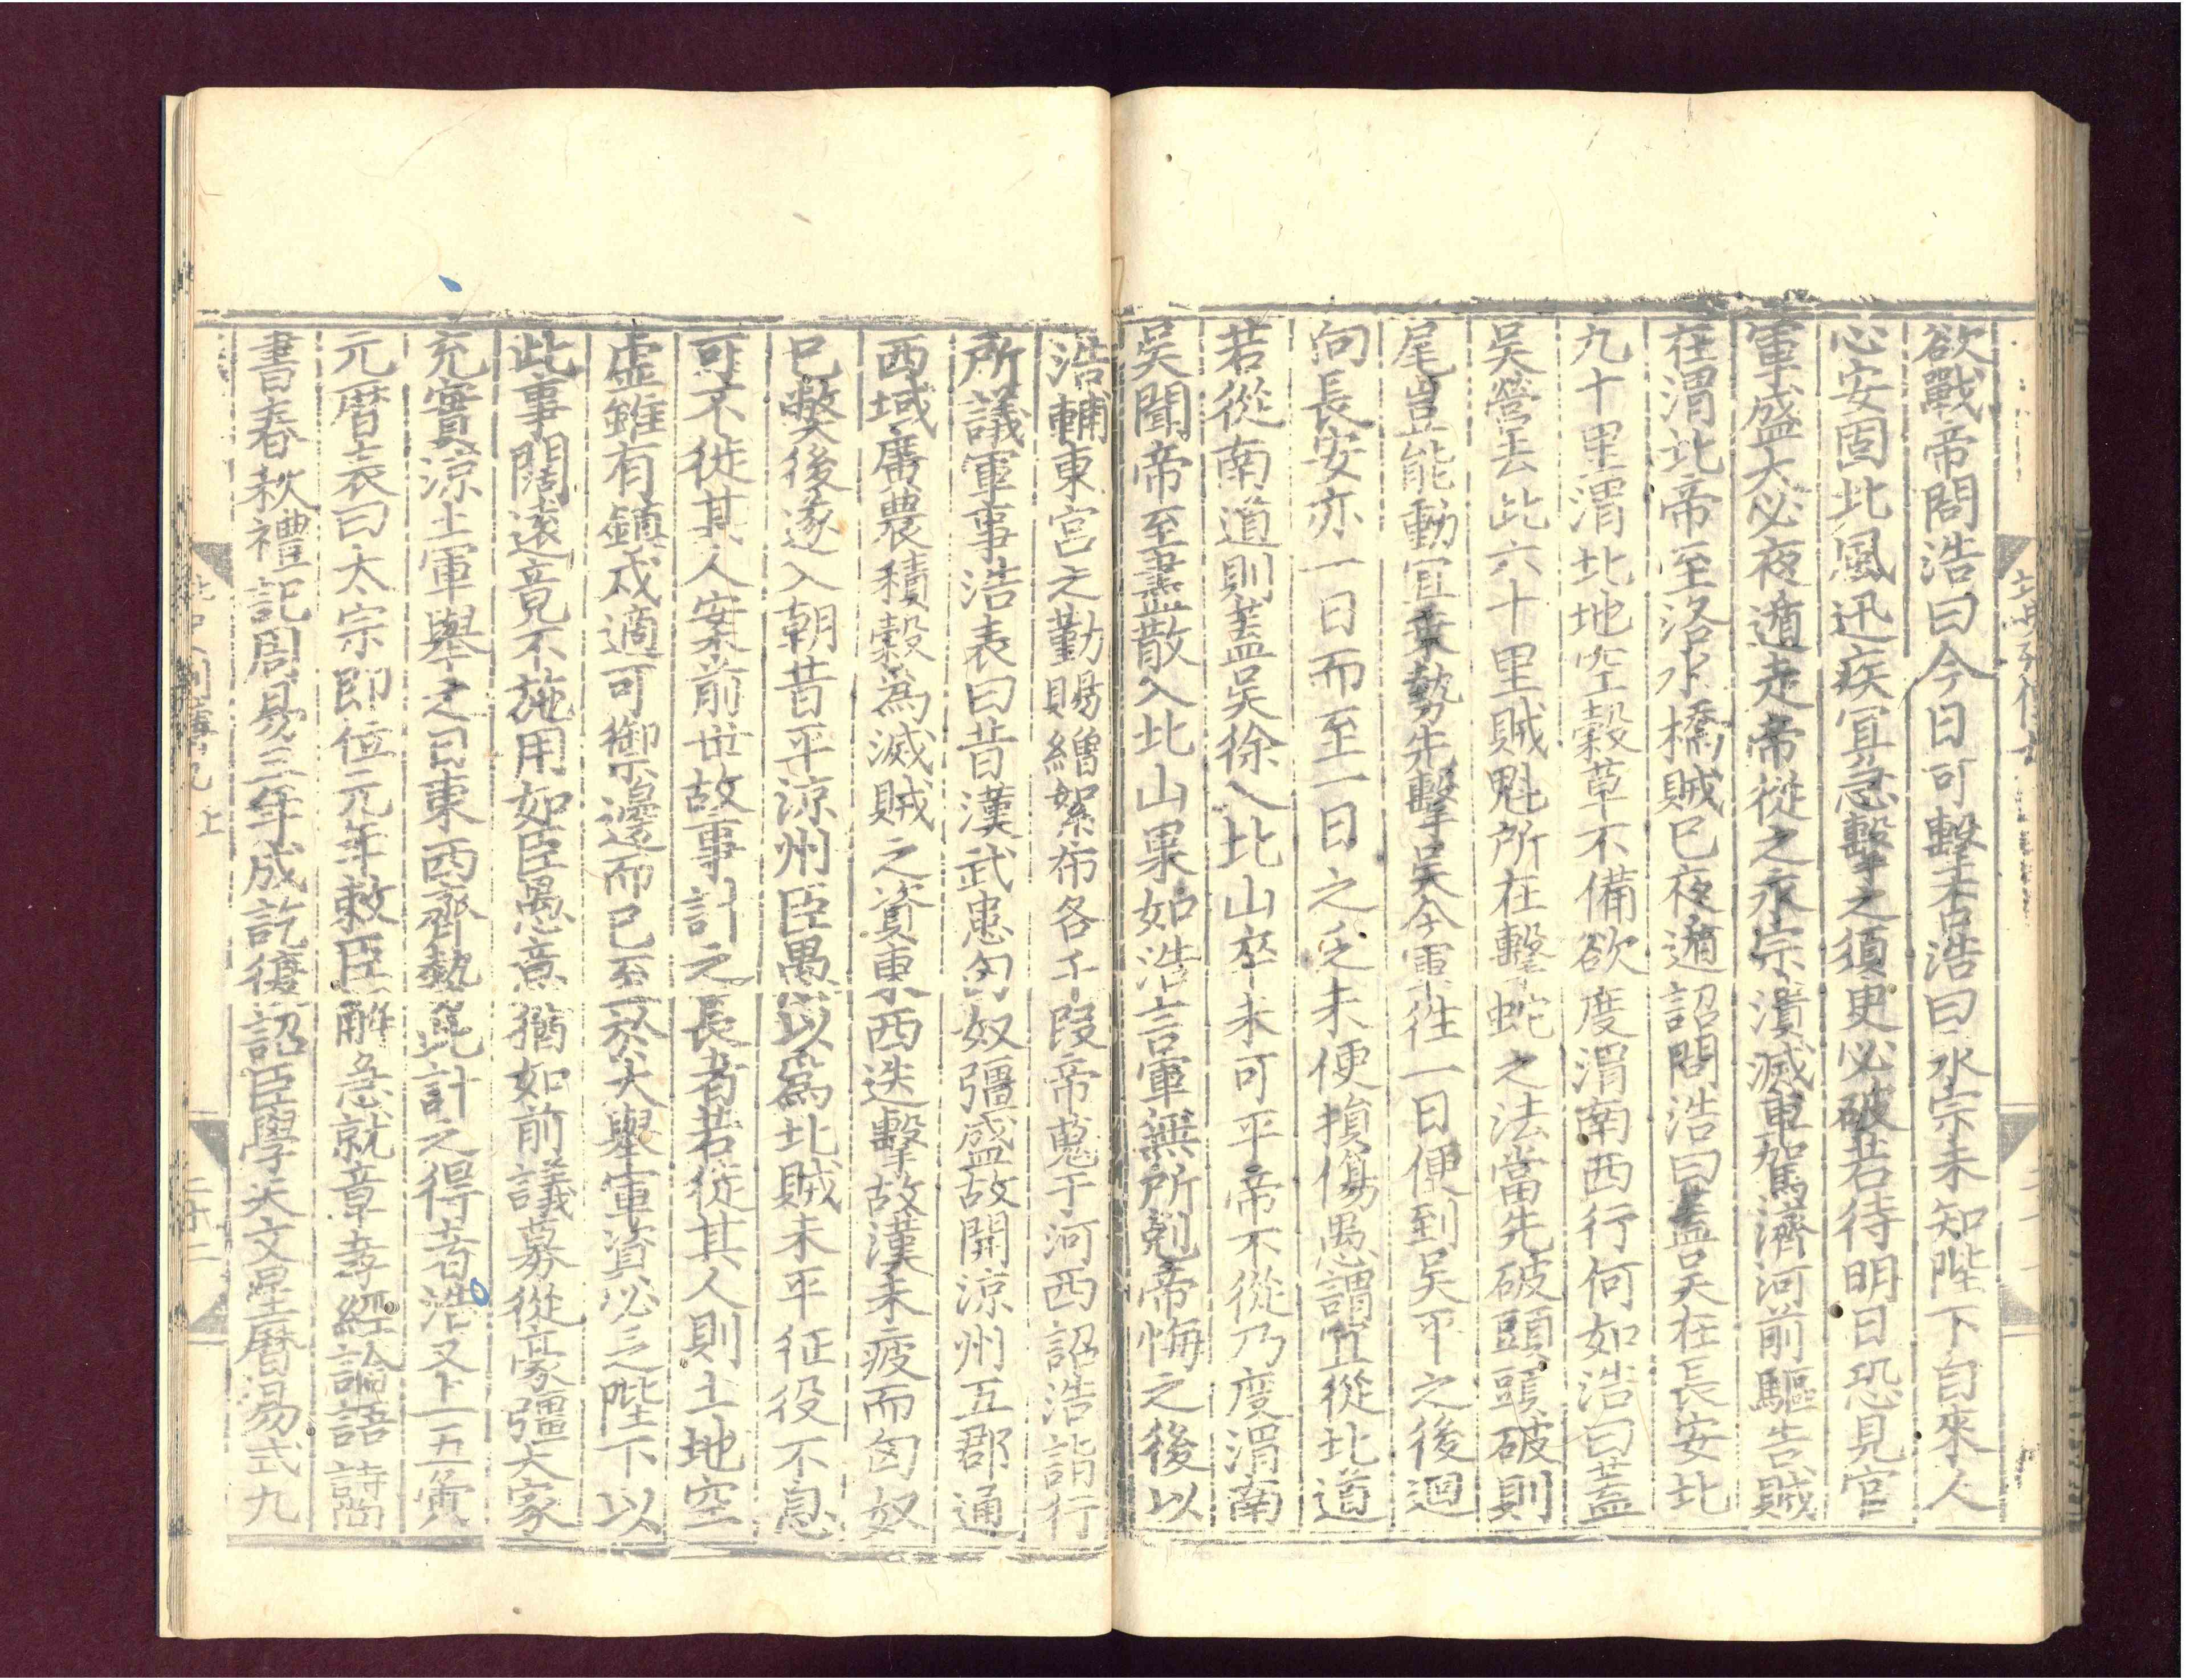 欲戰帝問浩曰今日可擊否浩曰永宗未知陛下自來人
心安固北風迅疾冝急擊之須更必破若待明日恐見官
軍盛大必夜遁走帝從之永宗潰滅車駕濟河前驅告賊
在渭北帝至洛水橋賊已夜遁詔問浩曰蓋吴在長安北
九十里渭北地空穀草不備欲度渭南西行何如浩曰蓋
吴營去此六十里賊魁所在擊蛇之法當先破頭頭破則
尾豈能動冝乗勢先擊吴今軍往一日便到吴平之後迴
向長安亦一日而至一日之乏未便損傷愚謂冝從北道
若從南道則蓋吴徐入北山卒未可平帝不從乃度渭南
吴聞帝至盡散入北山果如浩言軍無所剋帝悔之後以
浩輔東宮之勤賜繒絮布各千段帝蒐于河西詔浩詣行
所議軍事浩表曰昔漢武患匈奴彊盛故開涼州五郡通
西域廣農積榖為滅賊之資東西迭擊故漢未疲而匈奴
已弊後遂入朝昔平涼州臣愚以為北賊未平征役不息
可不徙其人案前世故事計之長者若徙其人則土地空
虛雖有鎮戍適可禦邊而已至於大舉軍資必乏陛下以
此事闊遠竟不施用如臣愚意猶如前議募徙豪彊大家
充實涼土軍舉之日東西齊勢此計之得者浩又上五寅
元暦表曰太宗即位元年敕臣解急就章孝經論語詩尚
書春秋禮記周易三年成訖復詔臣學天文星暦易式九
北史列傳九 上
二十二